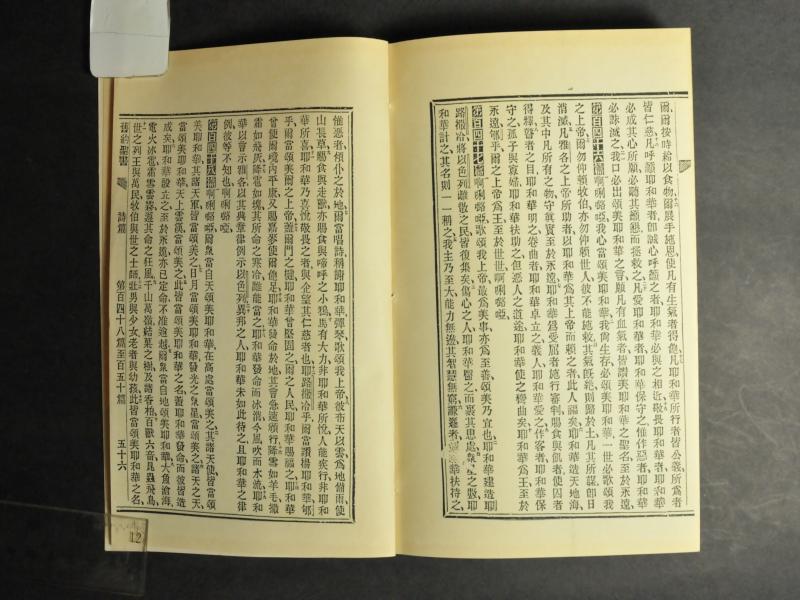 爾爾按時給以食物爾展手施恩使凡有生氣者得飽凡耶和華所行者皆公義所爲者
皆仁慈凡呼籲耶和華者卽誠心呼籲之者耶和華必與之相近敬畏耶和華者耶和華
必成其心所願必聽其籲懇而拯救之凡愛耶和華者耶和華保守之惟作惡者耶和華
必誅滅之我口必出頌美耶和華之言願凡有血氣者皆讚美耶和華之聖名至於永遠
第百四十六篇 啊唎嚕啞我心當頌美耶和華我尙生存必頌美耶和華一世必歌頌我
之上帝爾勿仰賴牧伯亦勿仰賴世人彼不能施救其氣旣絶則歸於土凡其所謀卽日
消滅凡雅各之上帝所助者以耶和華爲其上帝而賴之者此人福矣耶和華造天地海
及其中凡所有之物守眞實至於永遠耶和華爲受屈者施行審判賜食與飢者使囚者
得釋瞽者之目耶和華明之卷曲者耶和華卓立之義人耶和華愛之作客者耶和華保
守之孤子與寡婦耶和華扶助之但惡人之道途耶和華使之彎曲矣耶和華爲王至於
永遠郇乎爾之上帝爲王至於世世啊唎嚕啞
第百四十七篇 啊唎嚕啞歌頌我上帝最爲美事亦爲至善頌美乃宜也耶和華建造耶
路撒冷將以色列離散之民皆復集矣傷心之人耶和華醫之而裹其患處氣之數耶
和華計之其名則一一稱之我主乃至大能力無盡其智慧無窮謙遜者 華扶持之
惟惡者傾仆之於地爾當唱詩稱謝耶和華彈琴歌頌我上帝彼布天以雲爲地備雨使
山長草賜食與走獸亦賜食與啼呼之小鴉馬有大力非耶和華所悅人能疾行非耶和
華所喜耶和華乃喜悅敬畏之者與企望其仁慈者也耶路撒冷乎爾當讚揚耶和華郇
乎爾當頌美爾之上帝蓋爾門之楗耶和華曾堅固之爾之人民耶和華賜福之耶和華
曾使爾境內平康又賜嘉麥使爾飽足耶和華發命於地其言急速頒行降雪如羊毛撒
霜如飛灰降雹如塊其所命之寒冷誰能當之耶和華發命而冰消令風吹而水流耶和
華以言示雅各以其典章律例示以色列異邦之人耶和華未如此待之且耶和華之律
例彼等不知也啊唎嚕啞
第百四十八篇 啊唎嚕啞爾衆當自天頌美耶和華在高處當頌美之其諸天使皆當頌
美耶和華其諸天軍皆當頌美之日月當頌美耶和華發光之衆星當頌美之諸天之天
當頌美耶和華天上雲漢當頌美之此皆當頌美耶和華之名蓋耶和華發命而彼皆造
成矣耶和華設立之至於永遠亦已定命不准逾越爾衆當自地頌美耶和華大魚滄海
電火冰雹霜雪雲霧遵其命之狂風千山萬嶺結菓之樹及諸香柏百獸六畜昆蟲飛鳥
世之列王與萬民牧伯與世之士師壯男與少女老者與幼孩此皆當頌美耶和華之名
舊約聖書 詩篇 第百四十八篇至百五十篇 五十六
12